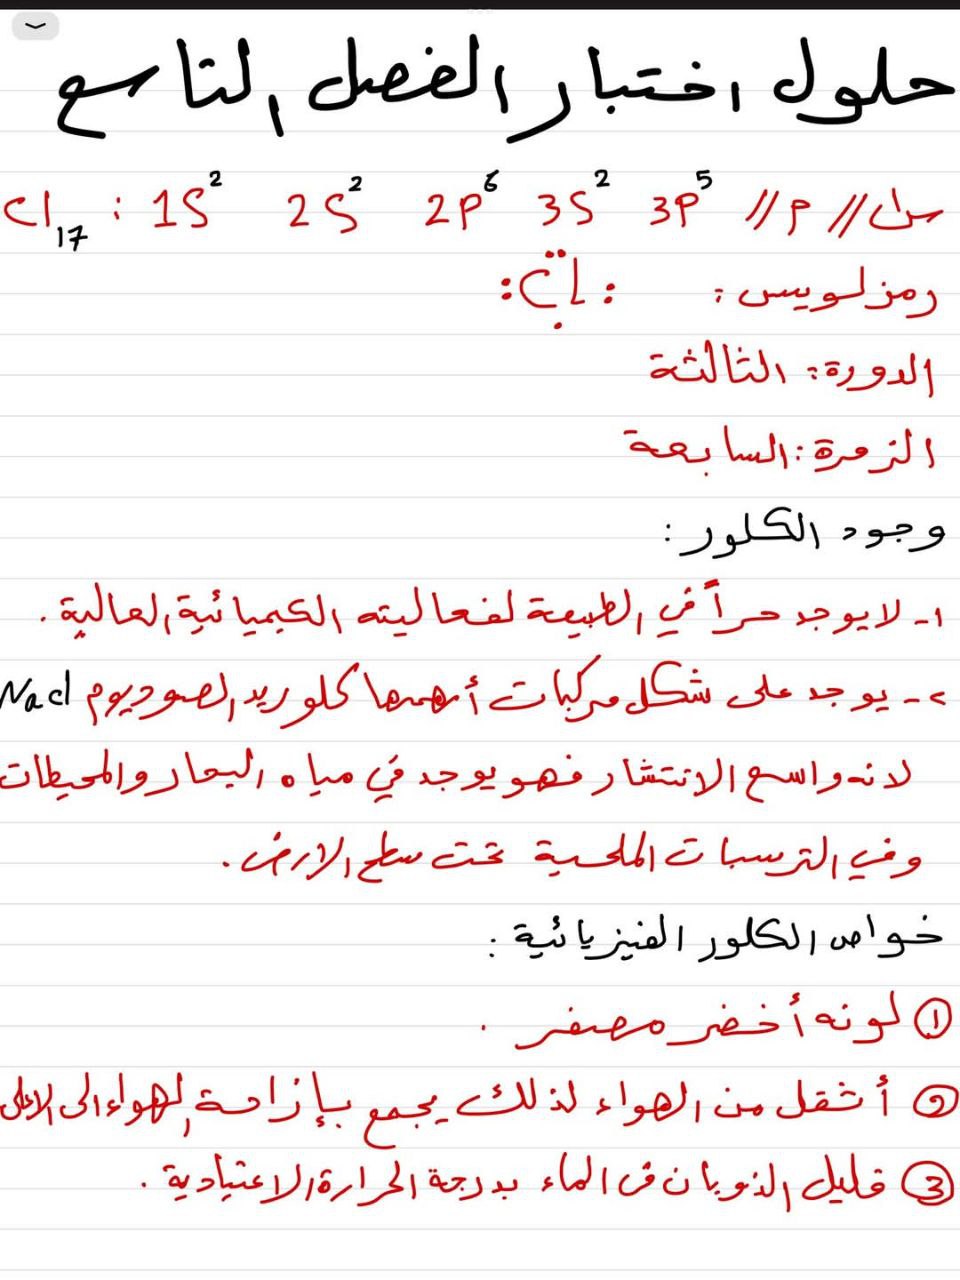 حلول اختبار الفصل التاسع
س١ // م // Cl17 : 1S² 2S² 2P⁶ 3S² 3P⁵
رمز لويس : :Cl:
الدورة: الثالثة
الزمرة: السابعة
وجود الكلور :
١- لا يوجد حراً في الطبيعة لفعاليته الكيميائية العالية .
٢- يوجد على شكل مركبات أهمها كلوريد الصوديوم Nacl
لانه واسع الانتشار فهو يوجد في مياه البحار والمحيطات
وفي الترسبات الملحية تحت سطح الارض .
خواص الكلور الفيزيائية :
① لونه أخضر مصفر .
② أثقل من الهواء لذلك يجمع بإزاحة الهواء الى الاعلى
③ قليل الذوبان في الماء بدرجة الحرارة الاعتيادية .